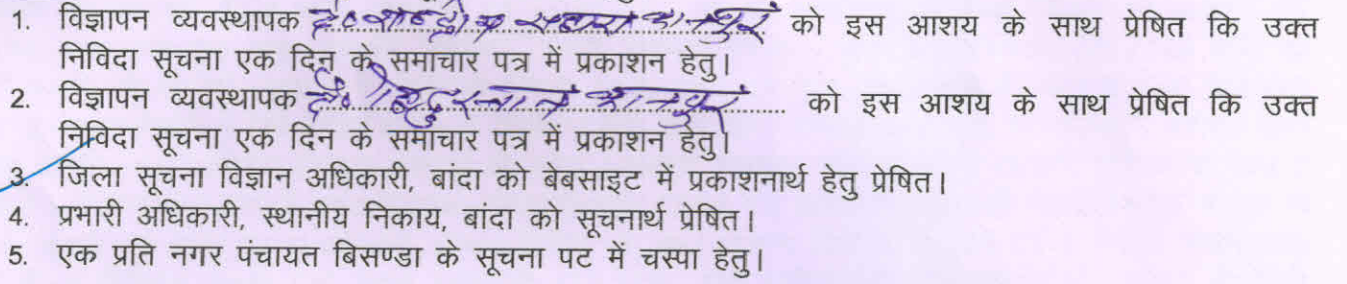 1. विज्ञापन व्यवस्थापक दै० राष्ट्रीय सहारा कानपुर को इस आशय के साथ प्रेषित कि उक्त
निविदा सूचना एक दिन के समाचार पत्र में प्रकाशन हेतु।
2. विज्ञापन व्यवस्थापक दै० हिन्दुस्तान कानपुर को इस आशय के साथ प्रेषित कि उक्त
निविदा सूचना एक दिन के समाचार पत्र में प्रकाशन हेतु।
3. जिला सूचना विज्ञान अधिकारी, बांदा को बेबसाइट में प्रकाशनार्थ हेतु प्रेषित।
4. प्रभारी अधिकारी, स्थानीय निकाय, बांदा को सूचनार्थ प्रेषित।
5. एक प्रति नगर पंचायत बिसण्डा के सूचना पट में चस्पा हेतु।